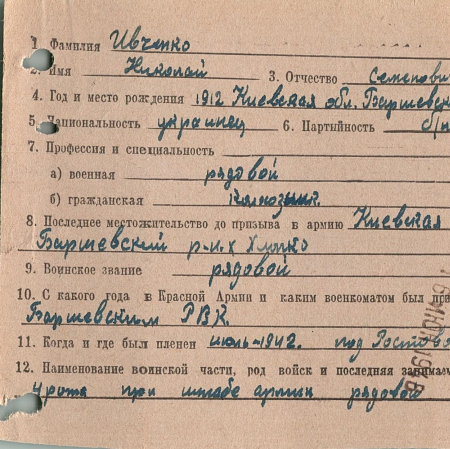 1. Фамилия Ивченко
2. Имя Николай 3. Отчество Семенови
4. Год и место рождения 1912 Киевская обл. Баршевск
5. Национальность украинец 6. Партийность б/п
7. Профессия и специальность
а) военная рядовой
б) гражданская
8. Последнее местожительство до призыва в армию Киевская
Баршевский р-н х
9. Воинское звание рядовой
10. С какого года в Красной Армии и каким военкоматом был при
Баршевским РВК
11. Когда и где был пленен июль-1942. под Ростово
12. Наименование воинской части, род войск и последняя занимаем
при штабе армии рядовой